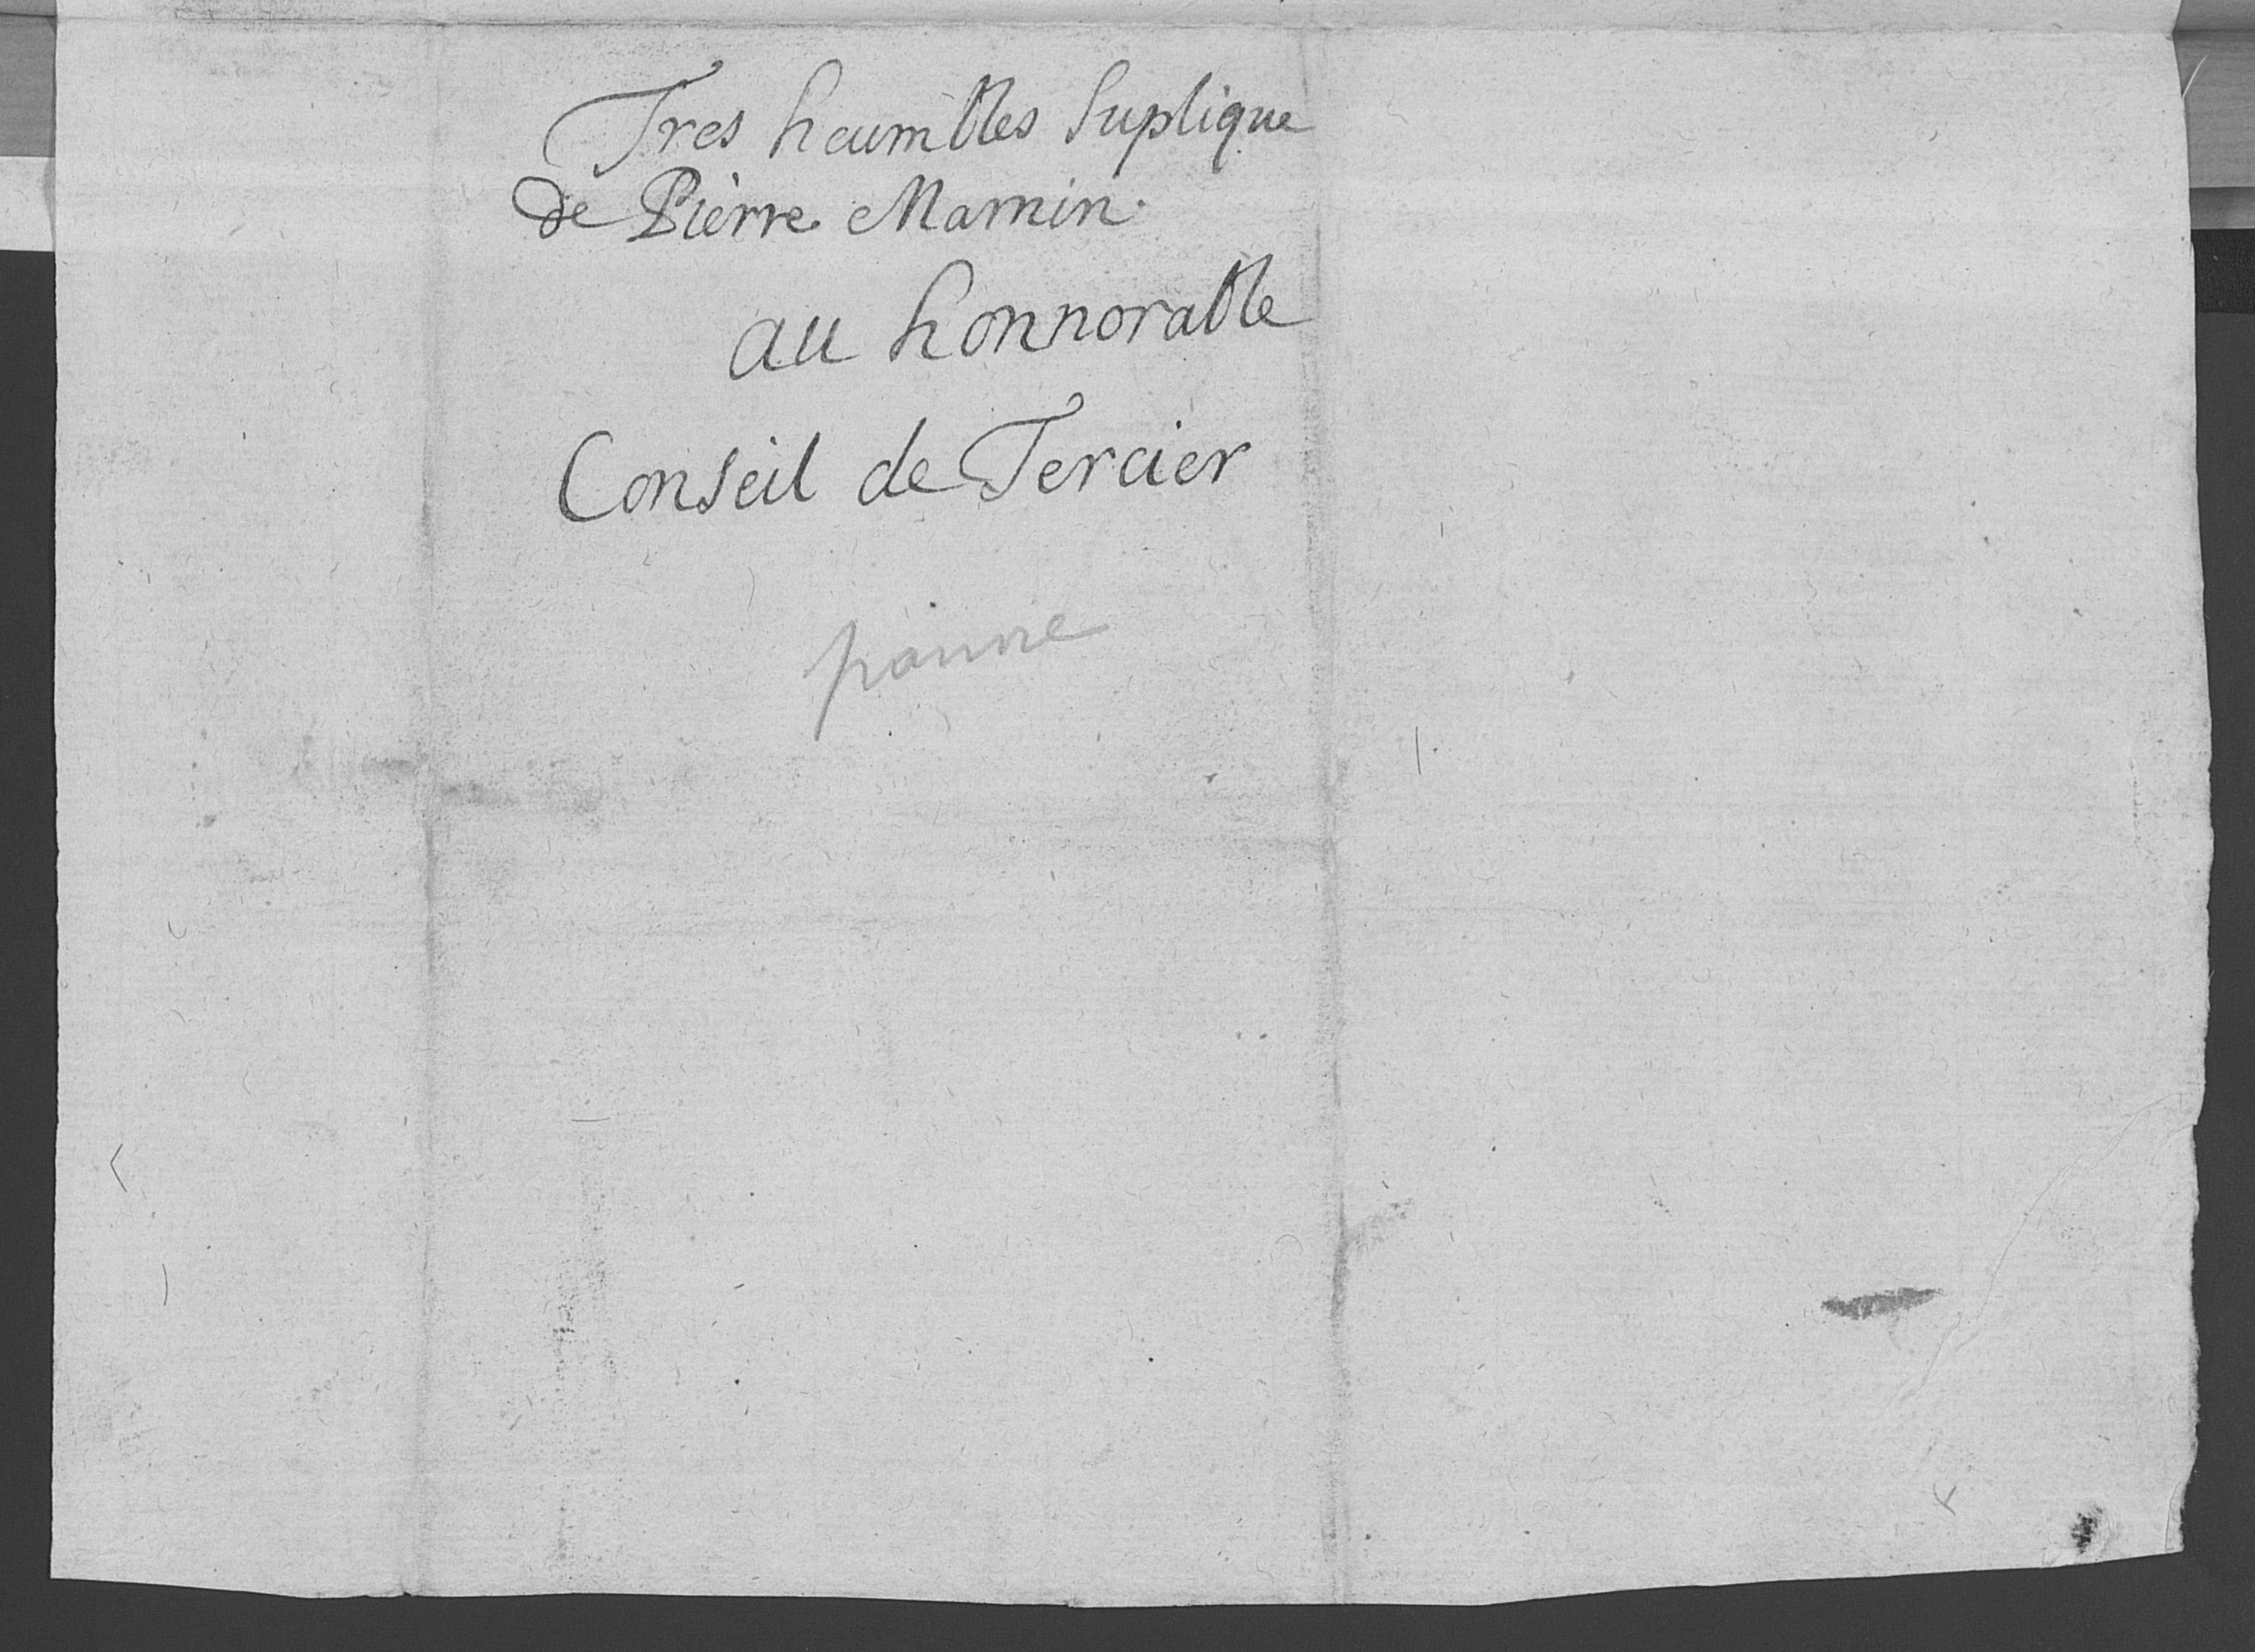 Tres heumbles Suplique
de Pierre Mamin.
au honnorable
Conseil de Tercier
pauvre